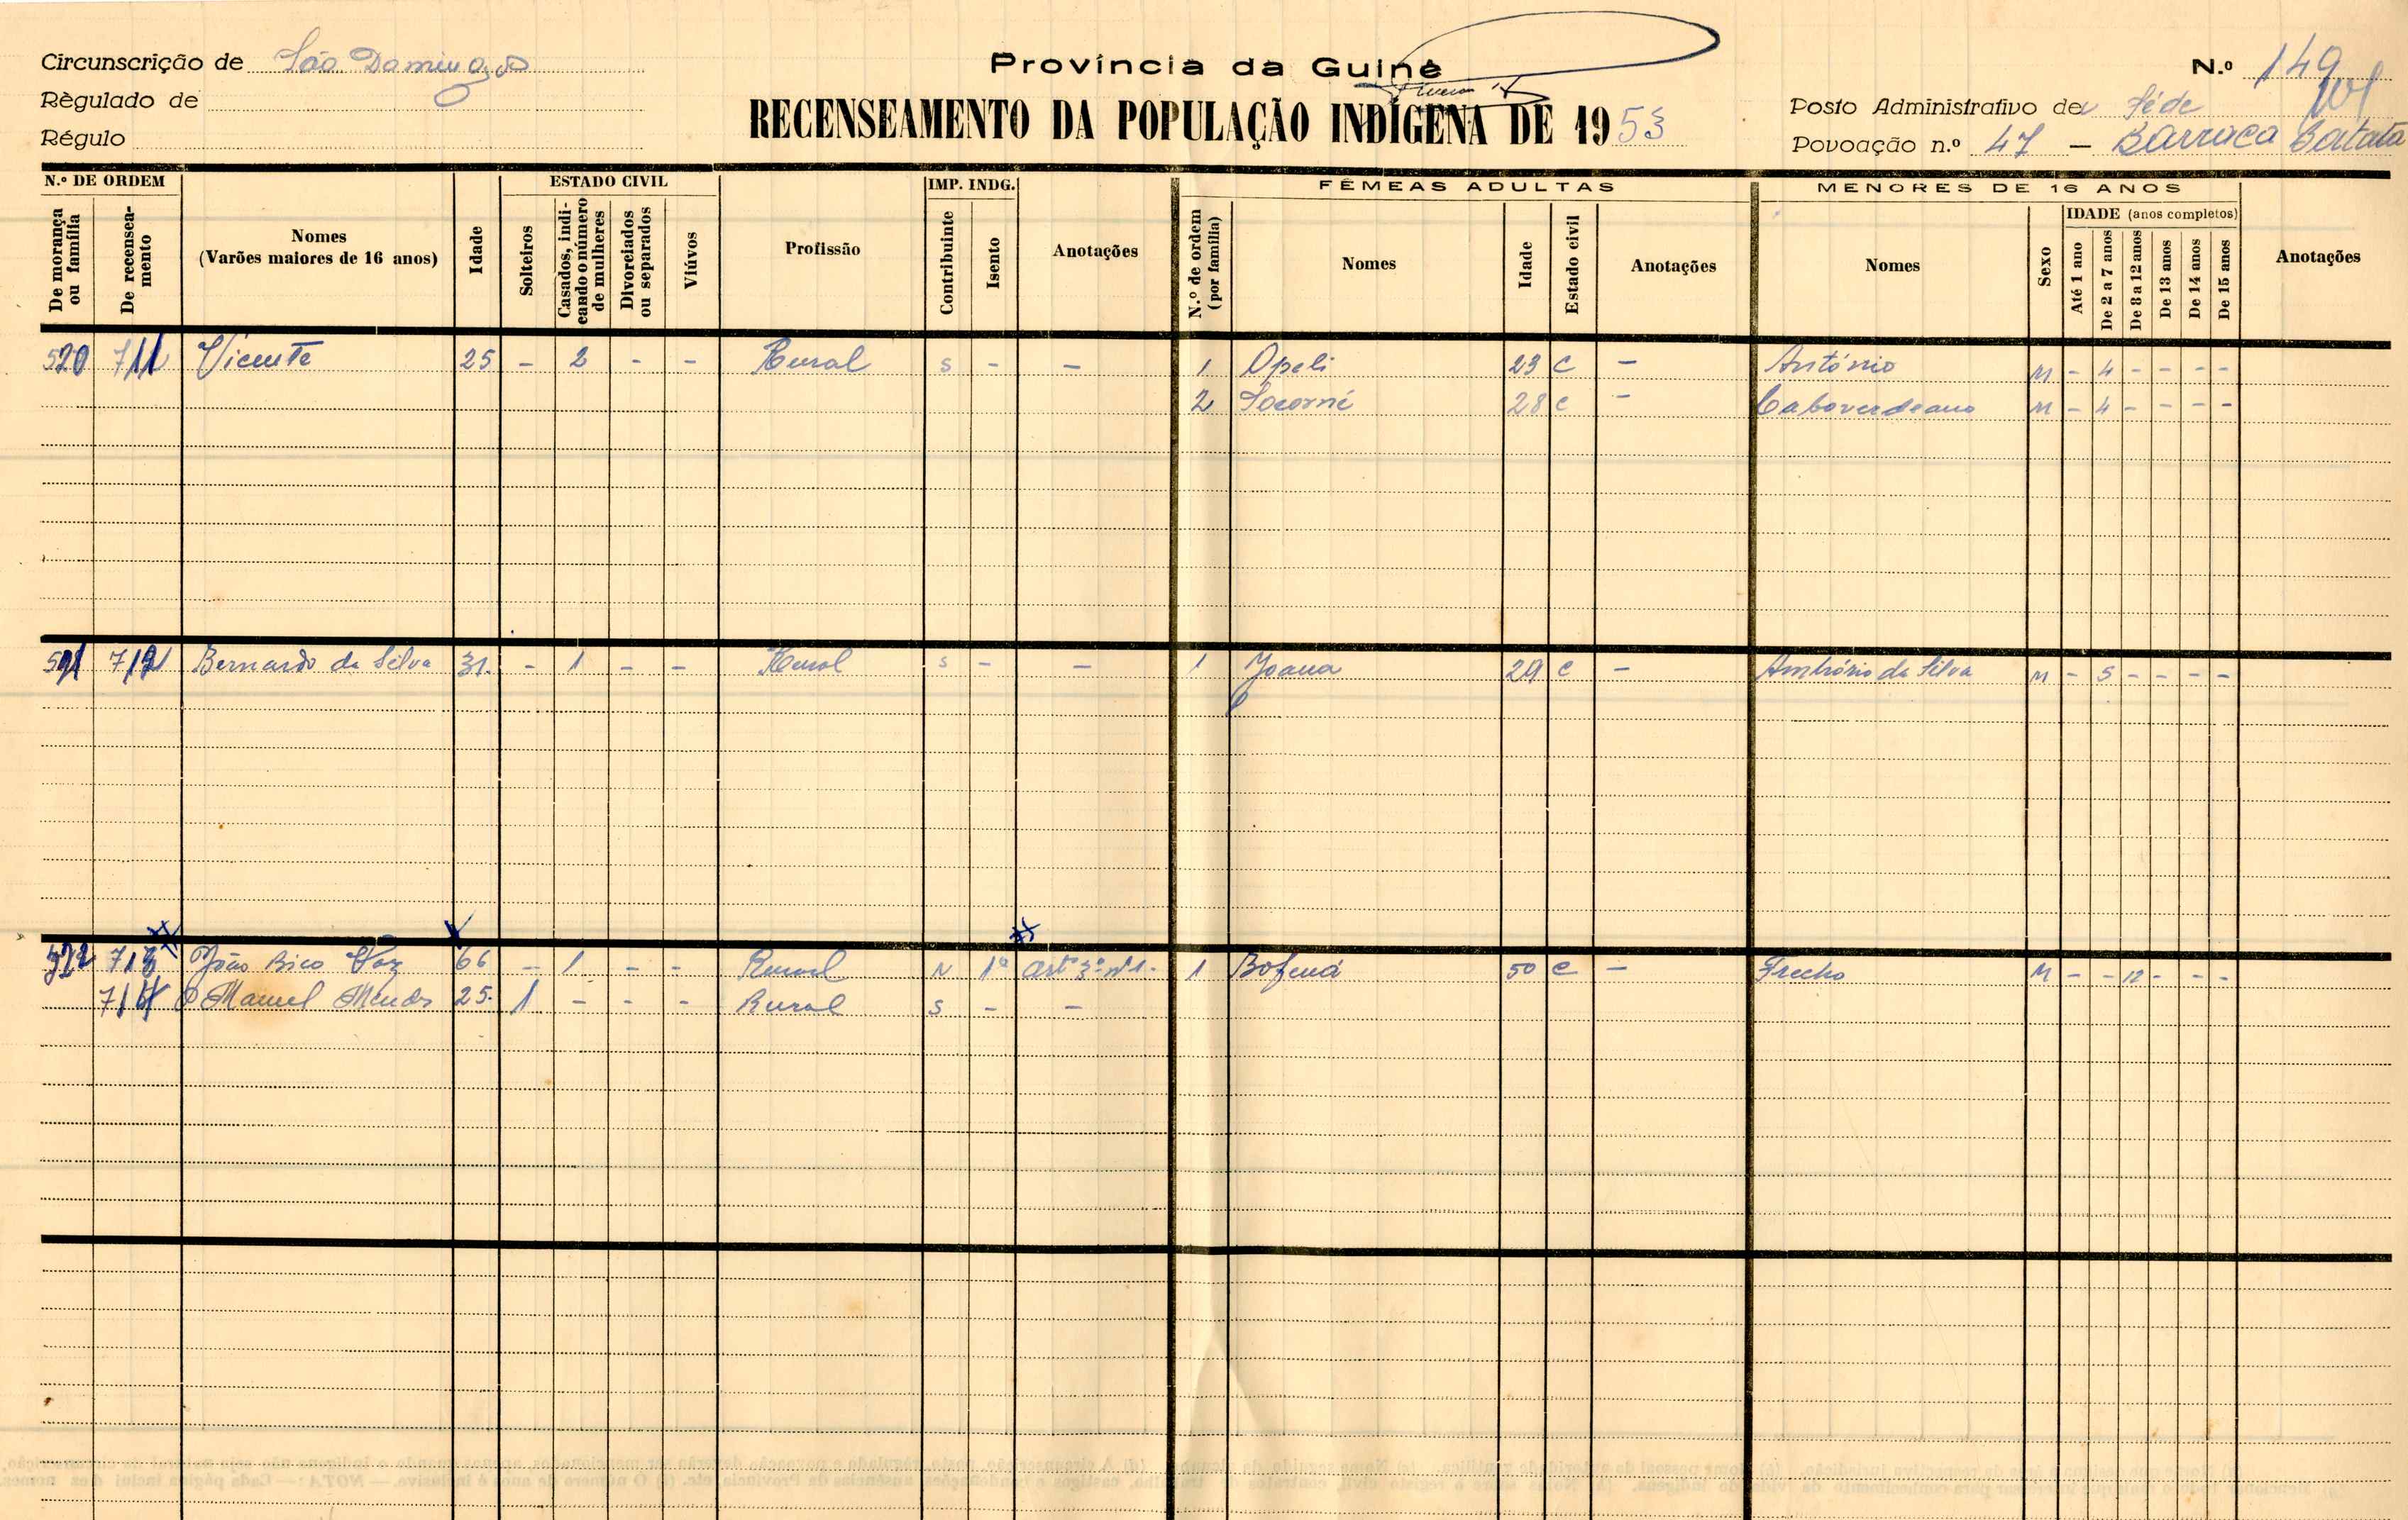 Circunscrição de São Domingos
Règulado de
Régulo
Província da Guiné
RECENSEAMENTO DA POPULAÇÃO INDÍGENA DE 1953
N.º 149
Posto Administrativo de Séde
Povoação n.º 47 - Barraca Batata
N.º DE ORDEM
De morança ou família
De recenseamento
Nomes
(Varões maiores de 16 anos)
Idade
ESTADO CIVIL
Solteiros
Casados, indicando o número de mulheres
Divorciados ou separados
Viúvos
Profissão
IMP. INDG.
Contribuinte
Isento
Anotações
FÊMEAS ADULTAS
N.º de ordem (por família)
Nomes
Idade
Estado civil
Anotações
MENORES DE 16 ANOS
Nomes
Sexo
IDADE (anos completos)
Até 1 ano
De 2 a 7 anos
De 8 a 12 anos
De 13 anos
De 14 anos
De 15 anos
Anotações
520 711 Vicente 25 - 2 - - Rural S - - 1 Opeli 23 C - António M - 4 - - - -
2 Socorné 28 C - Caboverdeano M - 4 - - - -
521 712 Bernardo da Silva 31. - 1 - - Rural S - - 1 Joana 29 C - Ambrósio da Silva M - 5 - - - -
522 713 João Bico Vaz 66 - 1 - - Rural N 1º Artº 3º nº 1. 1 Bofená 50 C - Frecho M - - 12 - - -
714 Manuel Mendes 25. 1 - - - Rural S - -